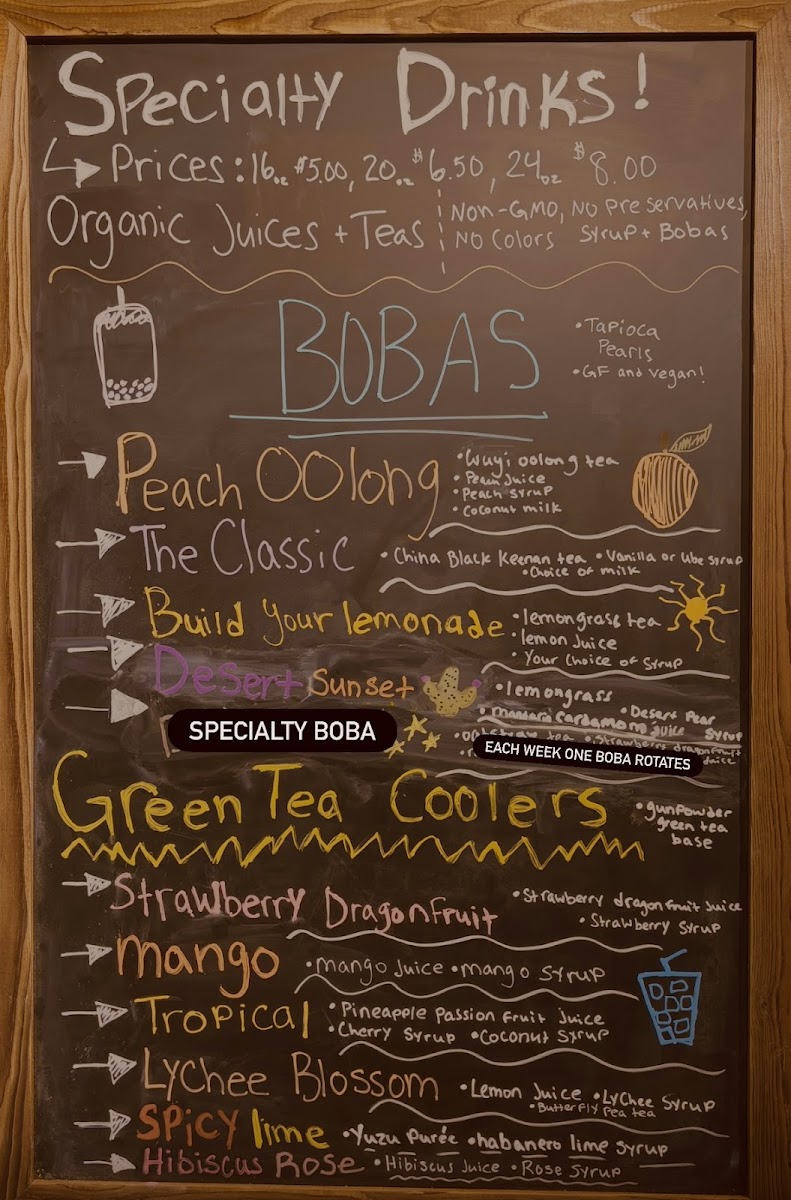 Specialty Drinks!
Prices: 16oz $5.00, 20oz $6.50, 24oz $8.00
Organic Juices + Teas
Non-GMO, No Preservatives,
No Colors Syrup + Bobas
BOBAS
• Tapioca
Pearls
• GF and vegan!
Peach Oolong
• Wuyi oolong tea
• Peach Juice
• Peach syrup
• Coconut milk
The Classic
• China Black Keenan tea • Vanilla or Ube syrup
• Choice of milk
Build Your lemonade
• lemongrass tea
• lemon Juice
• Your Choice of Syrup
Desert Sunset
• lemongrass
• cardamom • Desert Pear
Juice Syrup
SPECIALTY BOBA
tea • Strawberry dragonfruit
Juice
EACH WEEK ONE BOBA ROTATES
Green Tea Coolers
• gunpowder
green tea
base
Strawberry Dragonfruit
• Strawberry dragonfruit Juice
• Strawberry Syrup
mango
• mango Juice • mango Syrup
Tropical
• Pineapple Passion Fruit Juice
• Cherry Syrup • Coconut Syrup
Lychee Blossom
• Lemon Juice • Lychee Syrup
• Butterfly Pea tea
Spicy lime
• Yuzu Purée • habanero lime syrup
Hibiscus Rose
• Hibiscus Juice • Rose Syrup